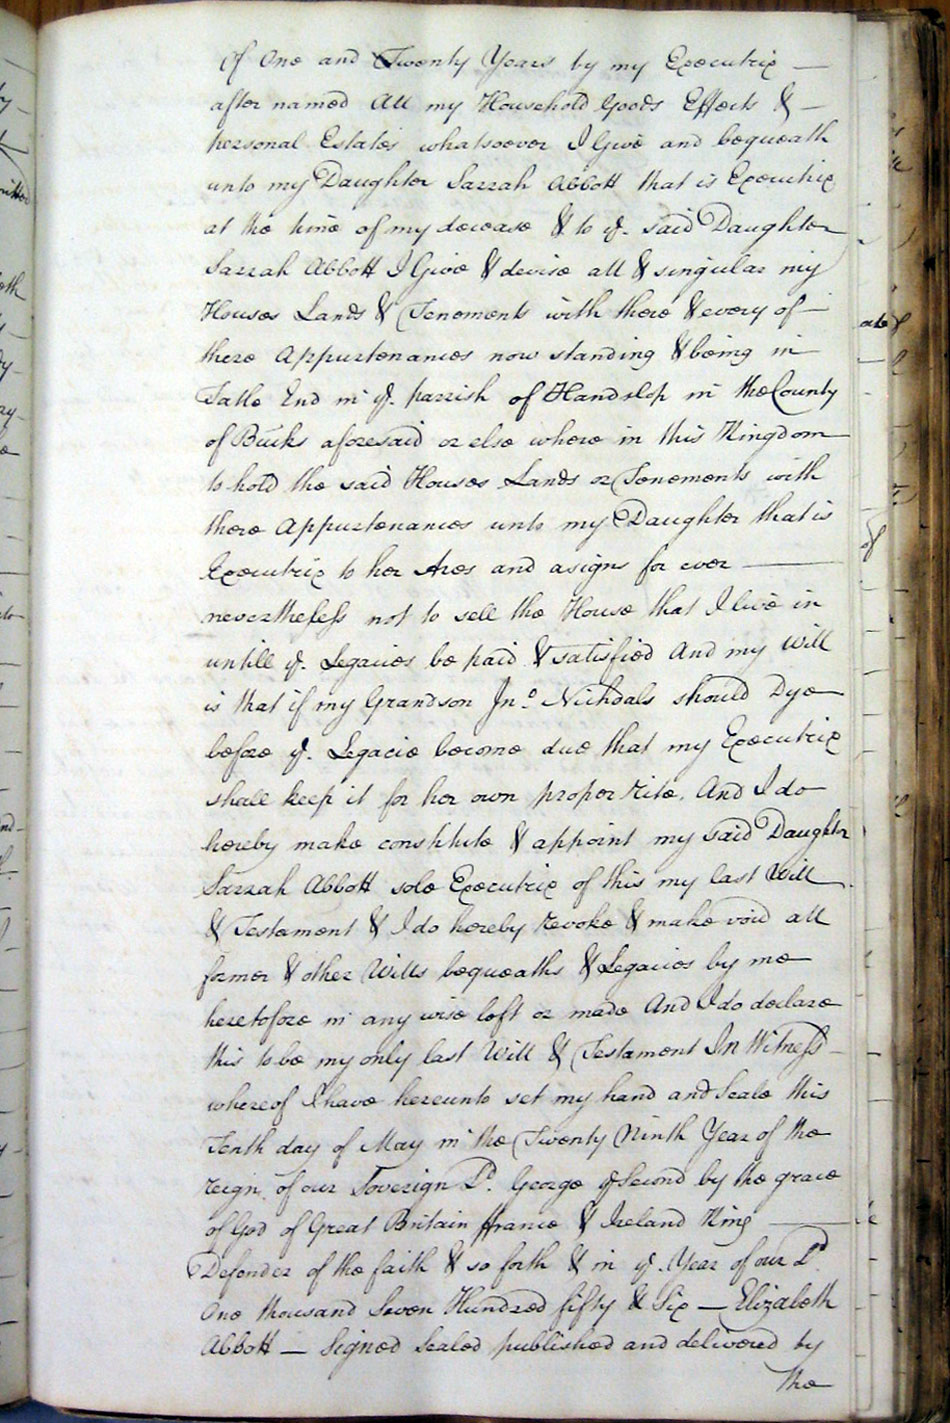 of One and Twenty Years by my Executrix —
after named All my Household Goods Effects & —
personal Estates whatsoever I Give and bequeath
unto my Daughter Sarrah Abbott that is Executrix
at the time of my decease & to ye. said Daughter
Sarrah Abbott I Give & devise all & singular my
Houses Lands & Tenements with there & every of —
there Appurtenances now standing & being in
Tathe End in ye. parrish of Handslop in the County
of Bucks aforesaid or else where in this Kingdom
to hold the said Houses Lands or Tenements with
there Appurtenances unto my Daughter that is
Executrix to her Ares and asigns for ever —
nevertheless not to sell the House that I live in
untill ye. Legacies be paid & satisfied And my Will
is that if my Grandson Jno. Nichoals should Dye
before ye. Legacie become due that my Executrix
shall keep it for her own proper rite. And I do
hereby make constitute & appoint my said Daughter
Sarrah Abbott sole Executrix of this my last Will
& Testament & I do hereby revoke & make void all
former & other Wills bequeaths & Legacies by me
heretofore in any wise left or made And I do declare
this to be my only last Will & Testament In Witness —
whereof I have hereunto set my hand and Seale this
Tenth day of May in the Twenty Ninth Year of the
reign of our Soverign Ld. George ye Second by the grace
of God of Great Britain ffrance & Ireland King —
Defender of the faith & so forth & in ye. Year of our Ld.
One thousand Seven Hundred fifty & Six — Elizabeth
Abbott — Signed Sealed published and delivered by
the